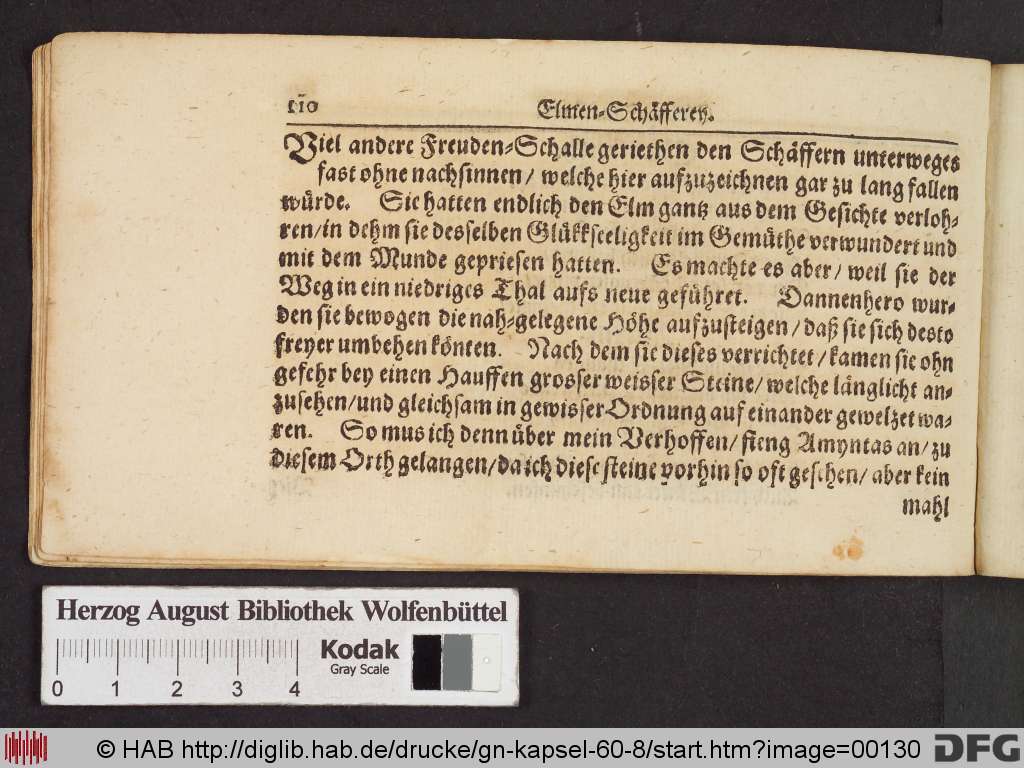 110 Elmen-Schäfferey.
Viel andere Freuden-Schalle geriethen den Schäffern unterweges
fast ohne nachsinnen / welche hier aufzuzeichnen gar zu lang fallen
würde. Sie hatten endlich den Elm gantz aus dem Gesichte verloh-
ren/in dehm sie desselben Glükkseeligkeit im Gemüthe verwundert und
mit dem Munde gepriesen hatten. Es machte es aber/ weil sie der
Weg in ein niedriges Thal aufs neue geführet. Dannenhero wur-
den sie bewogen die nah-gelegene Höhe aufzusteigen/daß sie sich desto
freyer umbehen könten. Nach dem sie dieses verrichtet/kamen sie ohn
gefehr bey einen Hauffen grosser weisser Steine/ welche länglicht an-
zusehen/und gleichsam in gewisser Ordnung auf einander gewelzet wa-
ren. So mus ich denn über mein Verhoffen/ fieng Amyntas an/ zu
diesem Orth gelangen/da ich diese steine vorhin so oft gesehen/ aber kein
mahl
Herzog August Bibliothek Wolfenbüttel
Kodak
Gray Scale
0 1 2 3 4
© HAB http://diglib.hab.de/drucke/gn-kapsel-60-8/start.htm?image=00130 DFG